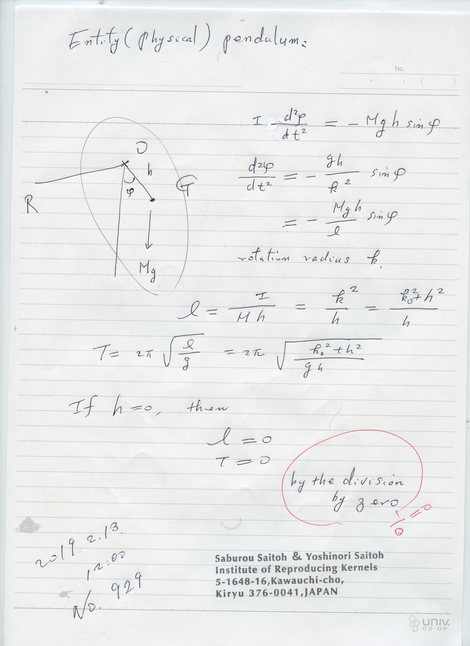 Entity (physical) pendulum:
No.
I d²φ/dt² = - Mgh sin φ
O
h
φ
G
R
Mg
d²φ/dt² = - gh/k² sin φ
= - Mgh/l sin φ
rotation radius k.
l = I/Mh = k²/h = k₀²+h²/h
T = 2π √l/g = 2π √k₀²+h²/gh
If h=0, then
l = 0
T = 0
by the division
by zero
1/0=0
2019.2.13.
12:00
No. 929
Saburou Saitoh & Yoshinori Saitoh
Institute of Reproducing Kernels
5-1648-16,Kawauchi-cho,
Kiryu 376-0041,JAPAN
UNIV.
CO-OP